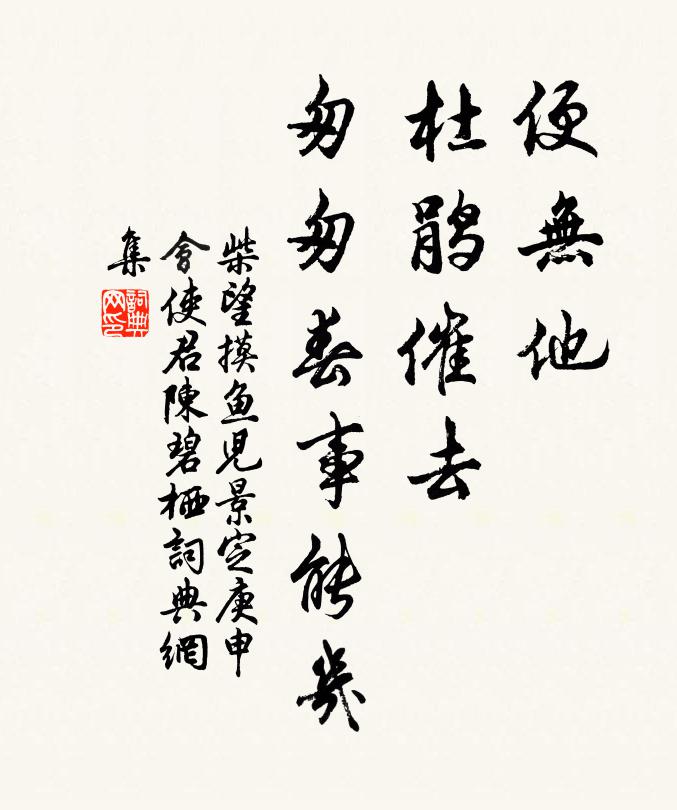 便無他
杜鵑催去
匆匆春事能幾
柴望摸魚兒景定庚申
會使君陳碧栖詞典網
集
詞典網印